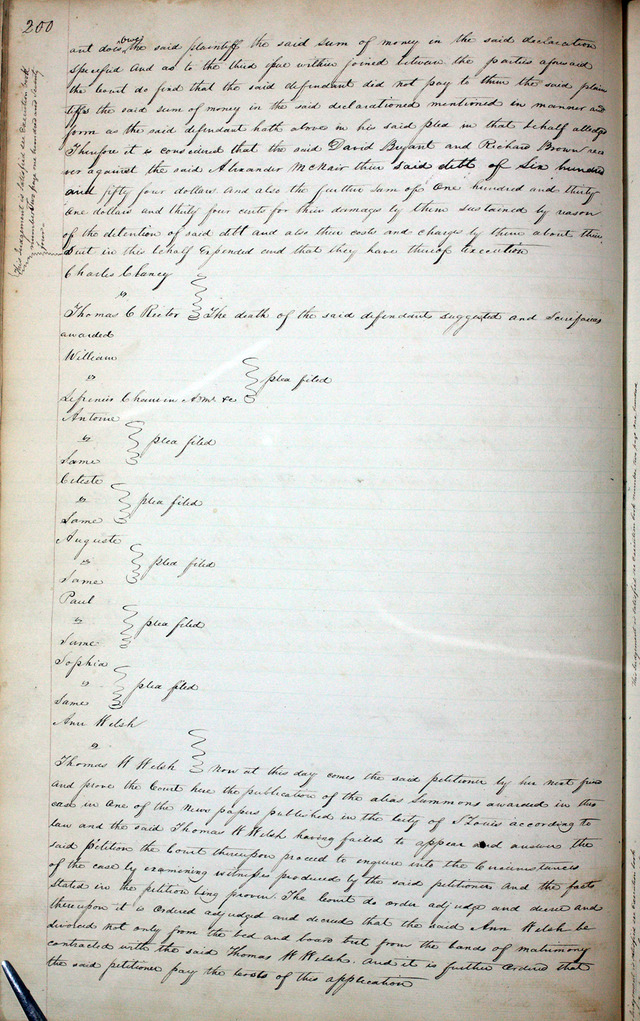 200
owe
ant does the said plaintiff the said sum of money in the said declaration
specified And as to the third issue within joined between the parties aforesaid
the Court do find that the said defendant did not pay to them the said plain
tiffs the said sum of money in the said declarationed mentioned in manner and
form as the said defendant hath above in his said plea in that behalf alledged
Therefore it is considered that the said David Bryant and Richard Brown reco
ver against the said Alexander McNair their said debt of Six hundred
and fifty four dollars and also the further sum of One hundred and thirty
One dollars and thirty four cents for their damages by them sustained by reason
of the detention of said debt and also their costs and charges by them about their
Suit in this behalf Expended and that they have thereof Execution
This Judgement is Satisfied see Execution book
page one hundred and seventy
four
Charles Clancy
"
Thomas C Rector The death of the said defendant suggested and Scirefacias
awarded
William
"
Chauvin Admr &c plea filed
Antoine
"
Same plea filed
Celeste
"
Same plea filed
Auguste
"
Same plea filed
Paul
"
Same plea filed
Sophia
"
Same plea filed
Ann Welsh
"
Thomas W Welsh Now at this day comes the said petitioner by her next friend
and prove the Court here the publication of the alias summons awarded in this
case in One of the News papers published in the City of St Louis according to
law and the said Thomas W Welsh having failed to appear and answer the
said Petition the Court thereupon proceed to enquire into the Circumstances
of the case by examining witnesses produced by the said petitioner and the facts
Stated in the petition being proven. The Court do order adjudge and decree and
thereupon it is Ordered adjudged and decreed that the said Ann Welsh be
divorced not only from the bed and board but from the bands of matrimony
contracted with the said Thomas W Welsh. And it is further Ordered that
the said petitioner pay the Costs of this application